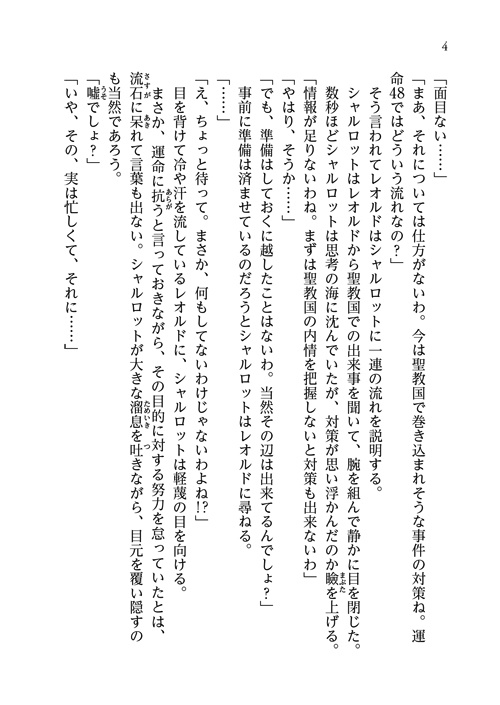 4
「面目ない……」
「まあ、それについては仕方がないわ。今は聖教国で巻き込まれそうな事件の対策ね。運
命48ではどういう流れなの？」
そう言われてレオルドはシャルロットに一連の流れを説明する。
シャルロットはレオルドから聖教国での出来事を聞いて、腕を組んで静かに目を閉じた。
数秒ほどシャルロットは思考の海に沈んでいたが、対策が思い浮かんだのか瞼を上げる。
「情報が足りないわね。まずは聖教国の内情を把握しないと対策も出来ないわ」
「やはり、そうか……」
「でも、準備はしておくに越したことはないわ。当然その辺は出来てるんでしょ？」
事前に準備は済ませているのだろうとシャルロットはレオルドに尋ねる。
「……」
「え、ちょっと待って。まさか、何もしてないわけじゃないわよね!?」
目を背けて冷や汗を流しているレオルドに、シャルロットは軽蔑の目を向ける。
まさか、運命に抗うと言っておきながら、その目的に対する努力を怠っていたとは、
流石に呆れて言葉も出ない。シャルロットが大きな溜息を吐きながら、目元を覆い隠すの
も当然であろう。
「嘘でしょ？」
「いや、その、実は忙しくて、それに……」